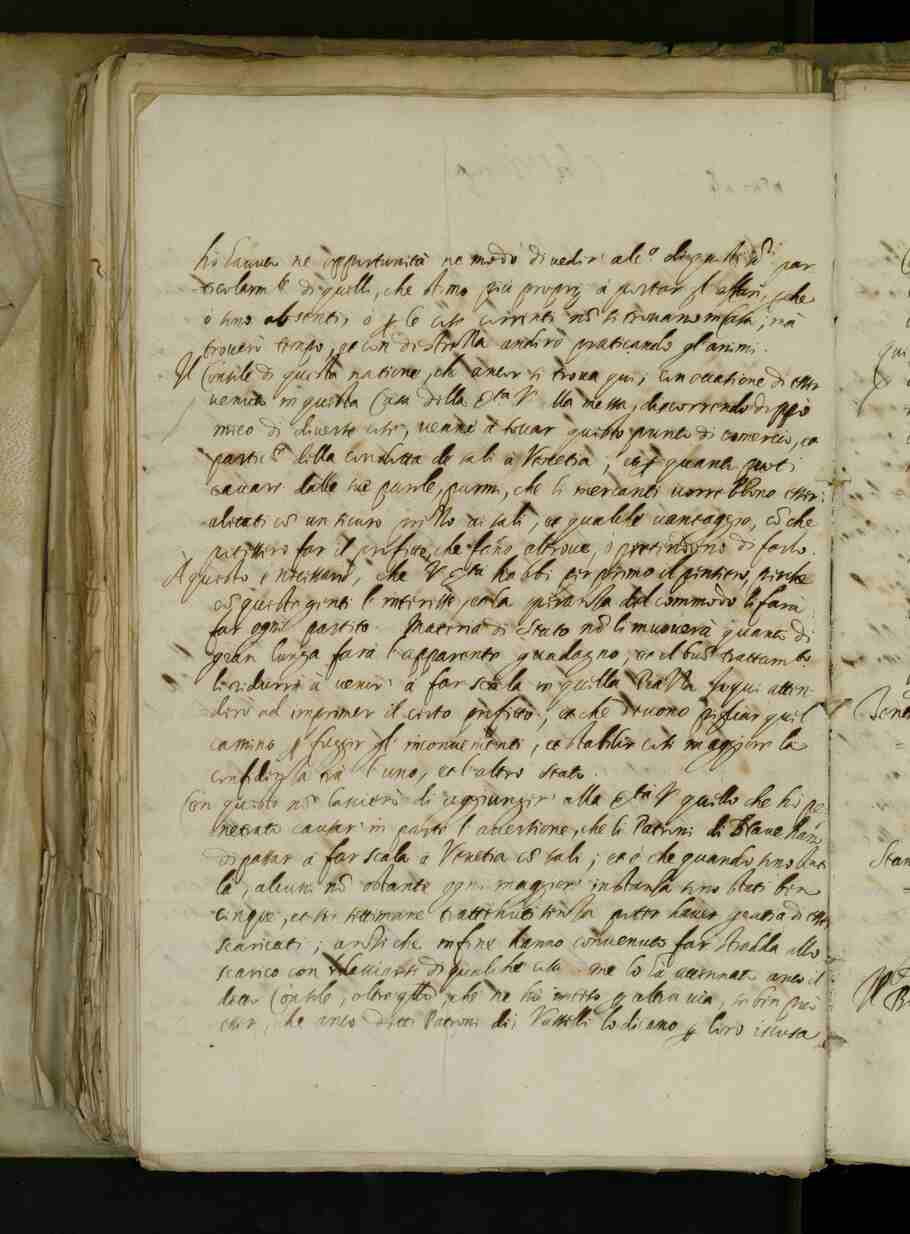 hò havuta ne opportunità ne modo di veder alc.º di questi S.ri par
ticolarm.te di quelli, che stimo più proprij à portar gl'affari, che
ò sono absenti, ò per le cose correnti nõ si trovano in casa; mà
troverò tempo, et con destrezza anderò praticando gl'animi.
Il Console di questa natione, ch'ancor si trova qui, con occasione di esser
venuto in questa Casa della Ser.tà V. alla messa, discorrendo
meco di diverse cose, venne à toccar questo punto di comercio, et
partic.re della condotta de sali à Venetia; et per quanto puoti
cavare dalle sue parole, parmi, che li mercanti vorrebbono esser
allettati cõ un sicuro prezzo ai sali, et qualche vantaggio, cõ che
potessero far il profitto, che fãno altrove, ò pretendono di farlo.
A questo è necessario, che V. Ser.tà habbi per primo il pensiero, perche
cõ queste genti l'interesse, et la speranza del commodo li farà
far ogni partito. Materia di Stato nõ li muoverà quanto di
gran lunga farà l'apparente guadagno, et il buõ trattam.to
li ridurrà à venir à far scala in quella Piazza. Io qui atten
derò ad imprimer il certo profitto; et che devono pigliar quel
camino per fuggir gl'inconvenienti, et stabilir cõ maggiore la
confidenza trà l'uno, et l'altro stato.
Con questo nõ lascierò di aggiunger alla Ser.tà V. quello che hò pe
netrato causar in parte l'avertione, che li Patroni di Nave hãno
di passar à far scala à Venetia cõ sali; et è che quando sono stati
là, alcuni nõ ostante ogni maggior instanza sono stati ben
cinque, et sei settimane trattenuti senza poter haver gratia di esser
scaricati; anzi che infine hanno convenuto far strada allo
scarico con rilasciarsi di qualche cosa. me lo hà accennato anco il
detto Console, oltre che ne hò inteso per altra via, se ben può
esser, che anco detti Patroni di Vasselli lo dicano per loro iscusa